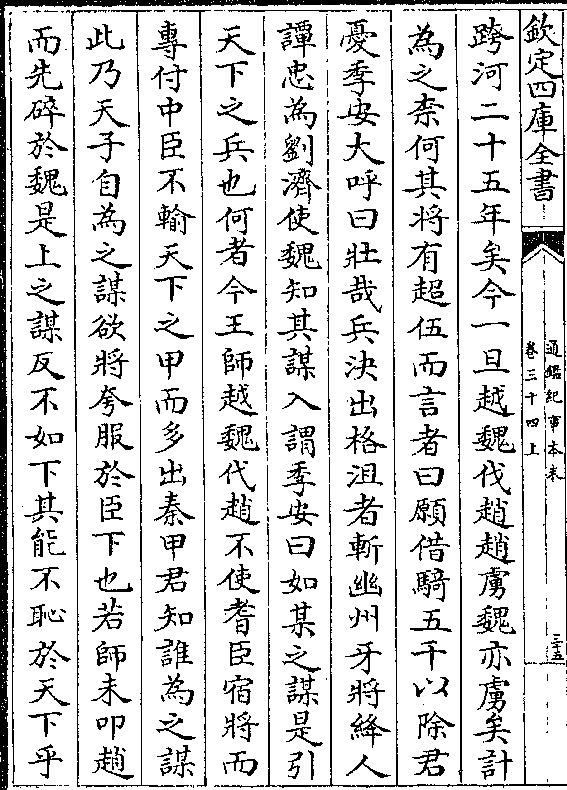 欽定四庫全書
通鑑紀事本末
卷三十四上
三十五
跨河二十五年矣今一旦越魏伐趙趙虜魏亦虜矣計
為之柰何其將有超伍而言者曰願借騎五千以除君
憂季安大呼曰壯哉兵決出格沮者斬幽州牙將絳人
譚忠為劉濟使魏知其謀入謂季安曰如某之謀是引
天下之兵也何者今王師越魏代趙不使耆臣宿將而
專付中臣不輸天下之甲而多出秦甲君知誰為之謀
此乃天子自為之謀欲將夸服於臣下也若師未叩趙
而先碎於魏是上之謀反不如下其能不恥於天下乎